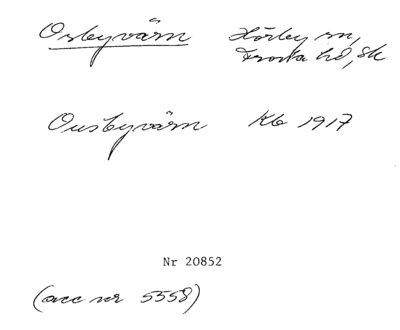 Osbyvärn Hörby sn,
Frosta hd, Sk
Ousbyvärn Kb 1917
Nr 20852
(acc nr 5558)